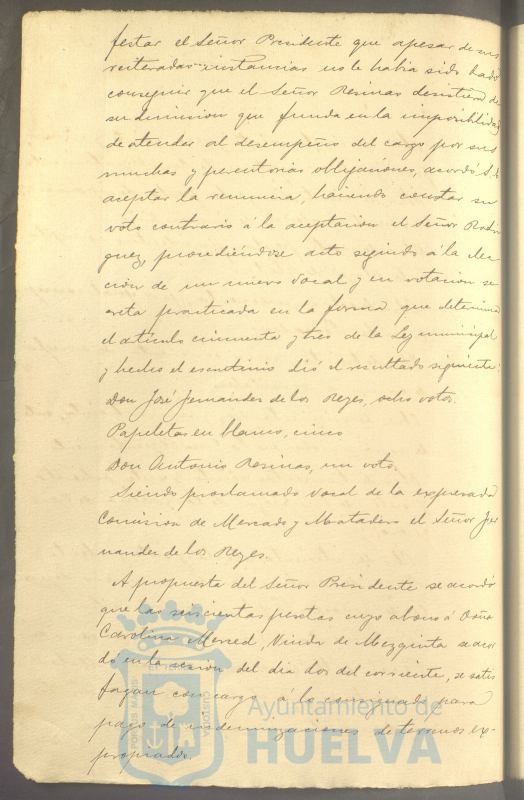 festar el Señor Presidente que apesar de sus
reiteradas instancias no le había sido dado
conseguir que el Señor Resinas desistiera de
su dimisión que funda en la imposibilidad
de atender al desempeño del cargo por sus
muchas y perentorias obligaciones, acordó S. E.
aceptar la renuncia, haciendo constar su
voto contrario á la aceptación el Señor Rodri
guez, procediéndose acto seguido á la elec
ción de un nuevo Vocal y en votación se
creta practicada en la forma que determina
el artículo cincuenta y tres de la Ley municipal
y hecho el escrutinio dió el resultado siguiente:
Don José Fernandez de los Reyes, ocho votos.
Papeletas en blanco, cinco
Don Antonio Resinas, un voto.
Siendo proclamado Vocal de la expresada
Comisión de Mercado y Matadero el Señor Fer
nandez de los Reyes.
A propuesta del Señor Presidente se acordó
que las seiscientas pesetas cuyo abono á Doña
Carolina Merced, Viuda de Mezquita se acor
dó en la sesión del dia dos del corriente, se satis
fagan con cargo a lo consignado para
pago de indemnizaciones de terrenos ex-
propiados.
Ayuntamiento de
HUELVA